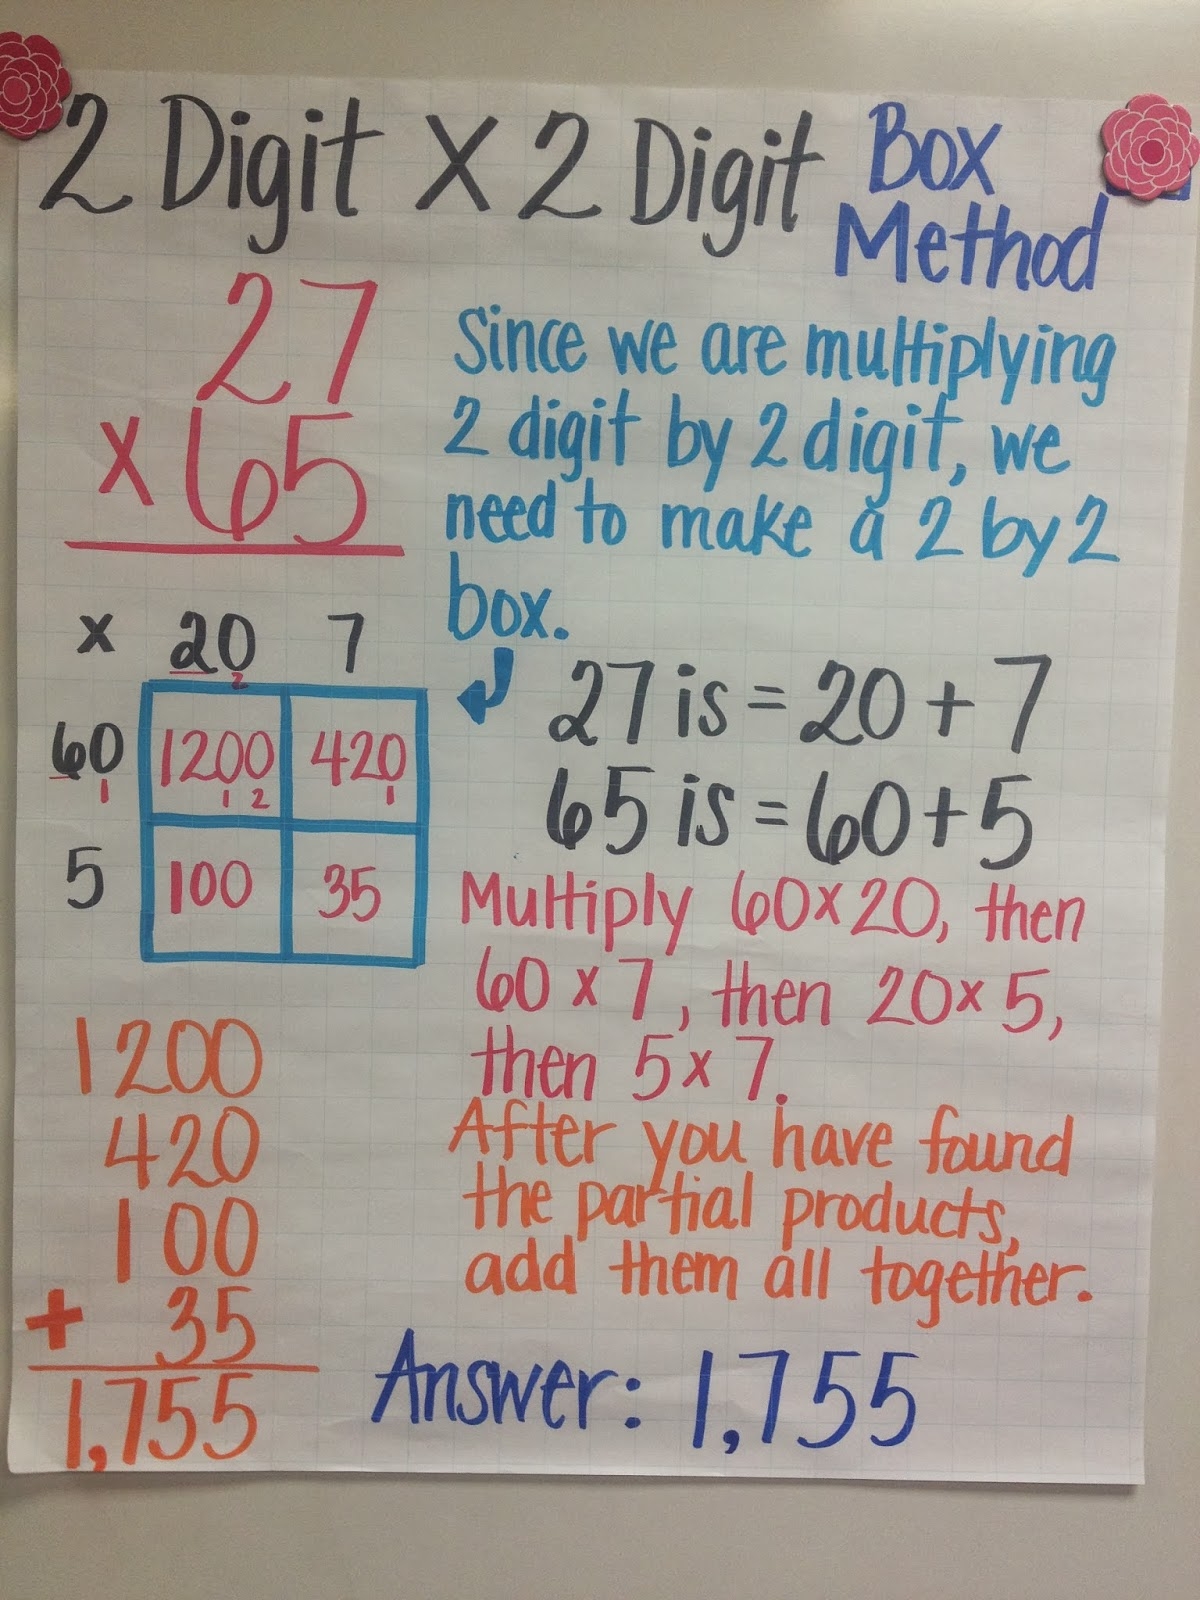 2 Digit X 2 Digit Box
Method
27
x 65
Since we are multiplying
2 digit by 2 digit, we
need to make a 2 by 2
box.
x 20 7
2
60 1200 420
1 1 2 1
5 100 35
27 is = 20 + 7
65 is = 60 + 5
Multiply 60 x 20, then
60 x 7, then 20 x 5,
then 5 x 7.
1200
420
100
+ 35
1,755
After you have found
the partial products,
add them all together.
Answer: 1,755